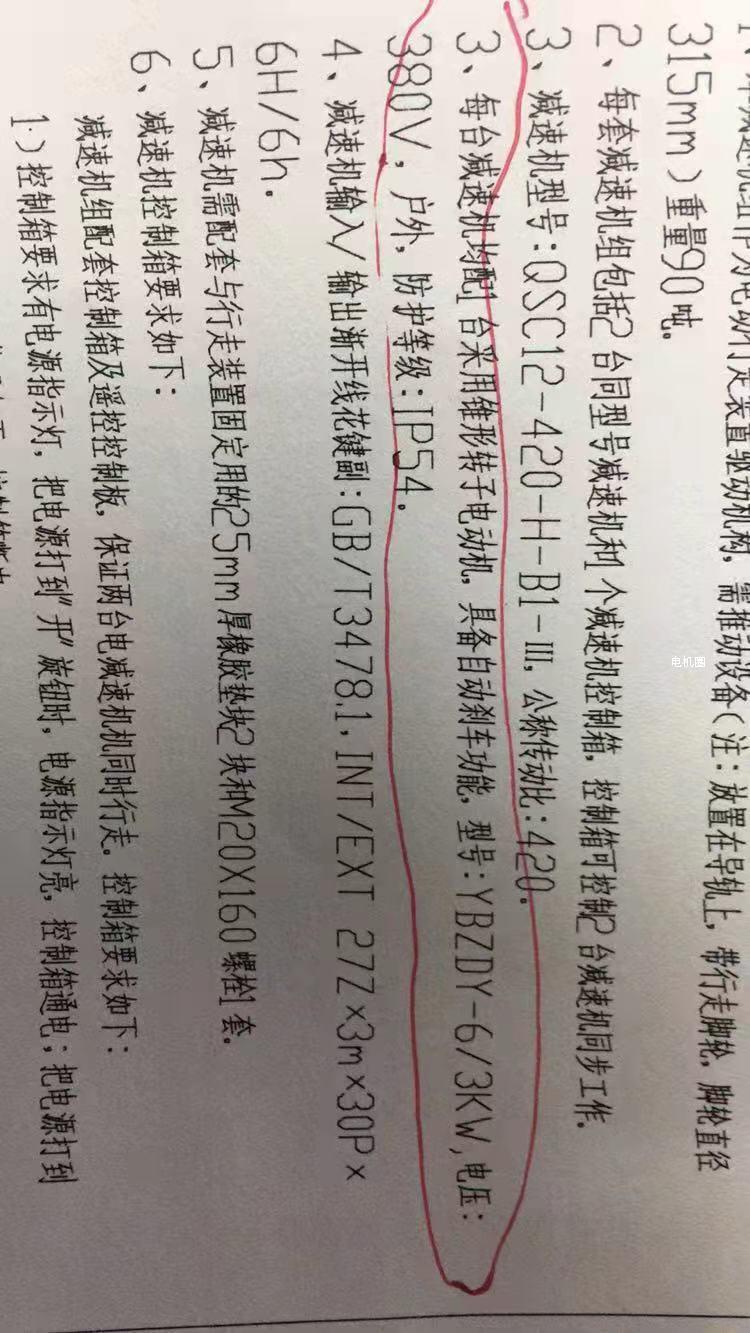 1、本减速机组作为电动行走装置驱动机构，需推动设备（注：放置在导轨上，带行走脚轮，脚轮直径
315mm）重量90吨。
2、每套减速机组包括2台同型号减速机和1个减速机控制箱，控制箱可控制2台减速机同步工作。
3、减速机型号：QSC12-420-H-B1-III，公称传动比：420.
3、每台减速机均配1台采用锥形转子电动机，具备自动刹车功能，型号：YBZDY-6/3KW，电压：
380V，户外，防护等级：IP54.
4、减速机输入/输出渐开线花键副：GB/T3478.1，INT/EXT 27Z×3m×30P×
6H/6h.
5、减速机需配套与行走装置固定用的25mm厚橡胶垫块2块和M20X160螺栓1套。
6、减速机控制箱要求如下：
减速机组配套控制箱及遥控控制板，保证两台电减速机机同时行走。控制箱要求如下：
1.）控制箱要求有电源指示灯，把电源打到“开”旋钮时，电源指示灯亮，控制箱通电；把电源打到
电机圈